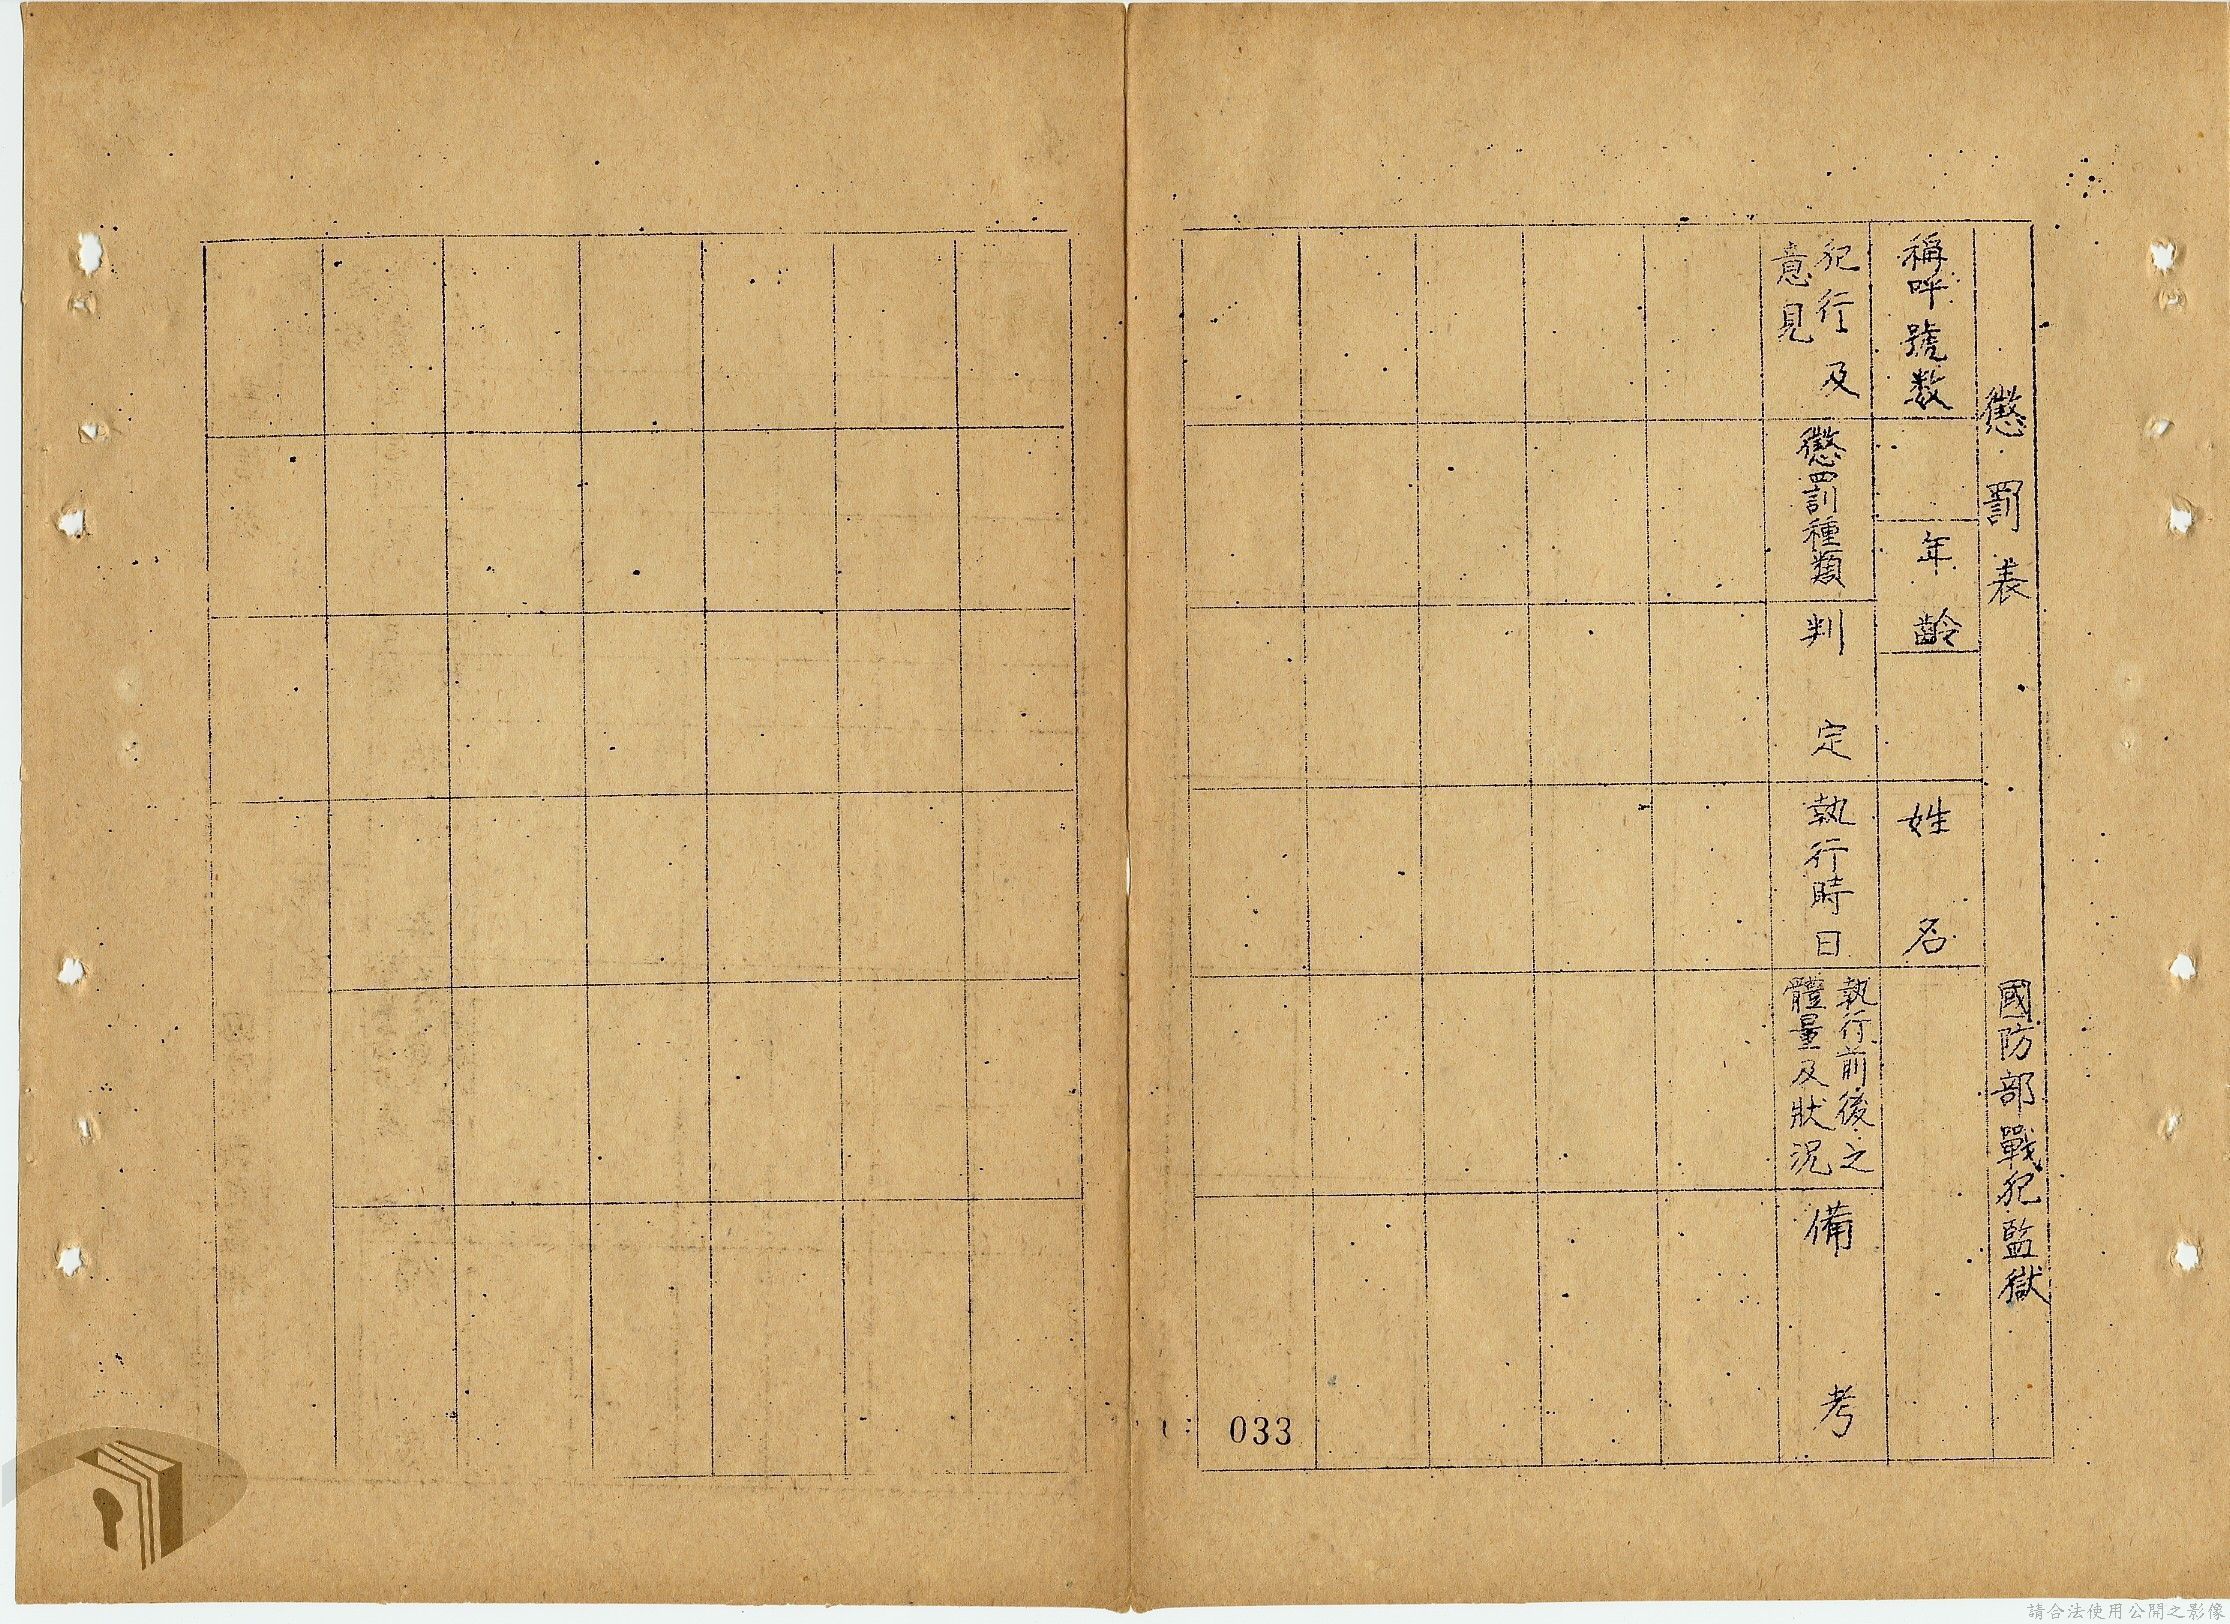 懲罰表　國防部戰犯監獄
稱呼號数
年齡
姓名
犯行及
意見
懲罰種類
判定
執行時日
執行前後之
體量及狀況
備考
033
請合法使用公開之影像